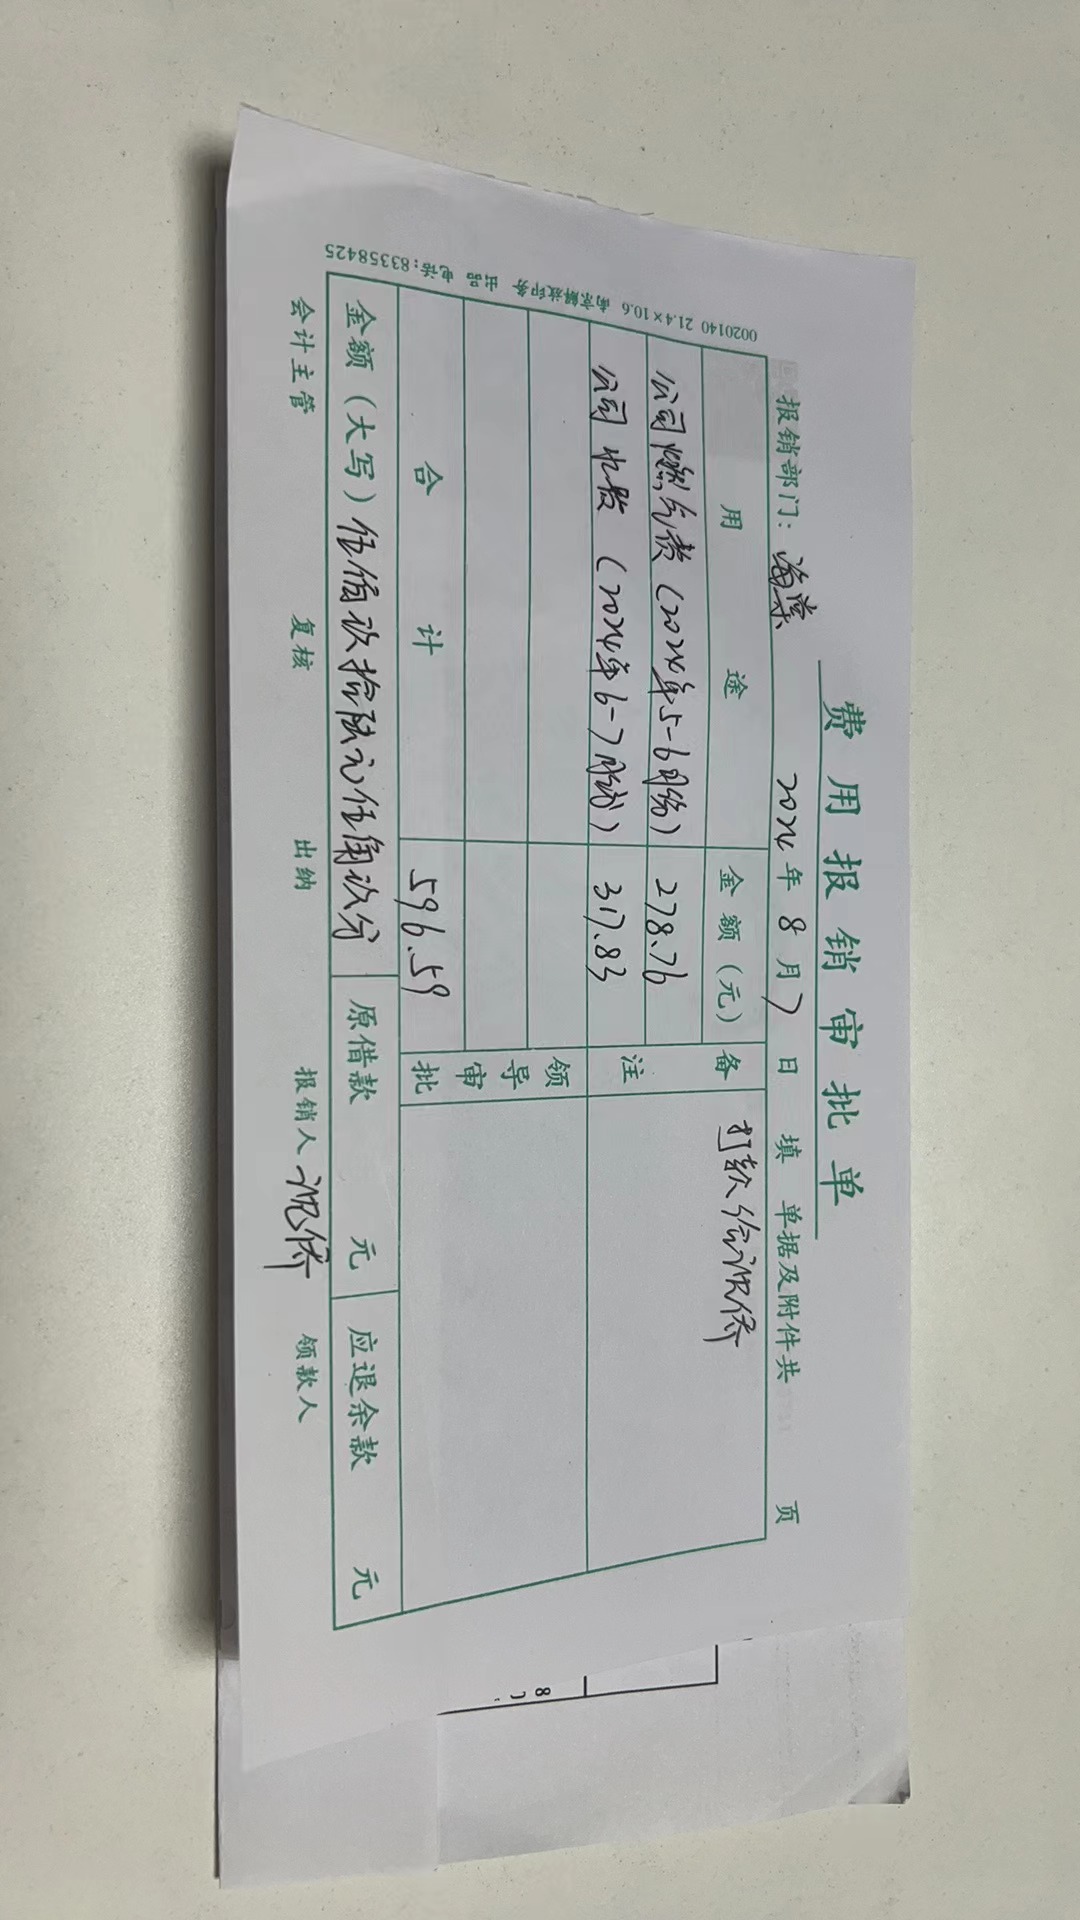 费用报销审批单
报销部门：海棠 2024年8月7日填 单据及附件共 页
用途 金额（元） 备注 打款给沈侨
公司燃气费（2024年5-6月份） 278.76
公司水费（2024年6-7月份） 317.83
领导审批
合计 596.59
金额（大写）伍佰玖拾陆元伍角玖分 原借款 元 应退余款 元
会计主管 复核 出纳 报销人 沈侨 领款人
0020140 21.4×10.6 南京解放印务 出品 电话：83358425